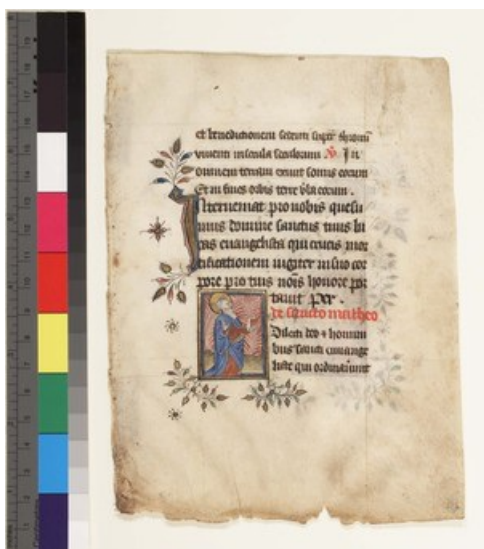 et benedictionem sedenti super thronū
viventi in secula seculorum ℣. In
omnem terram exivit sonus eorum
Et in fines orbis terre v̄ba eorum.
Interveniat pro nobis quesu
mus domine sanctus tuus lu
cas evangelista qui crucis mor
tificationem iugiter in suo cor
pore pro tuis nōis honore por
tavit per.
de sancto matheo
Dilecti deo ⁊ homini
bus sancti evange
liste qui